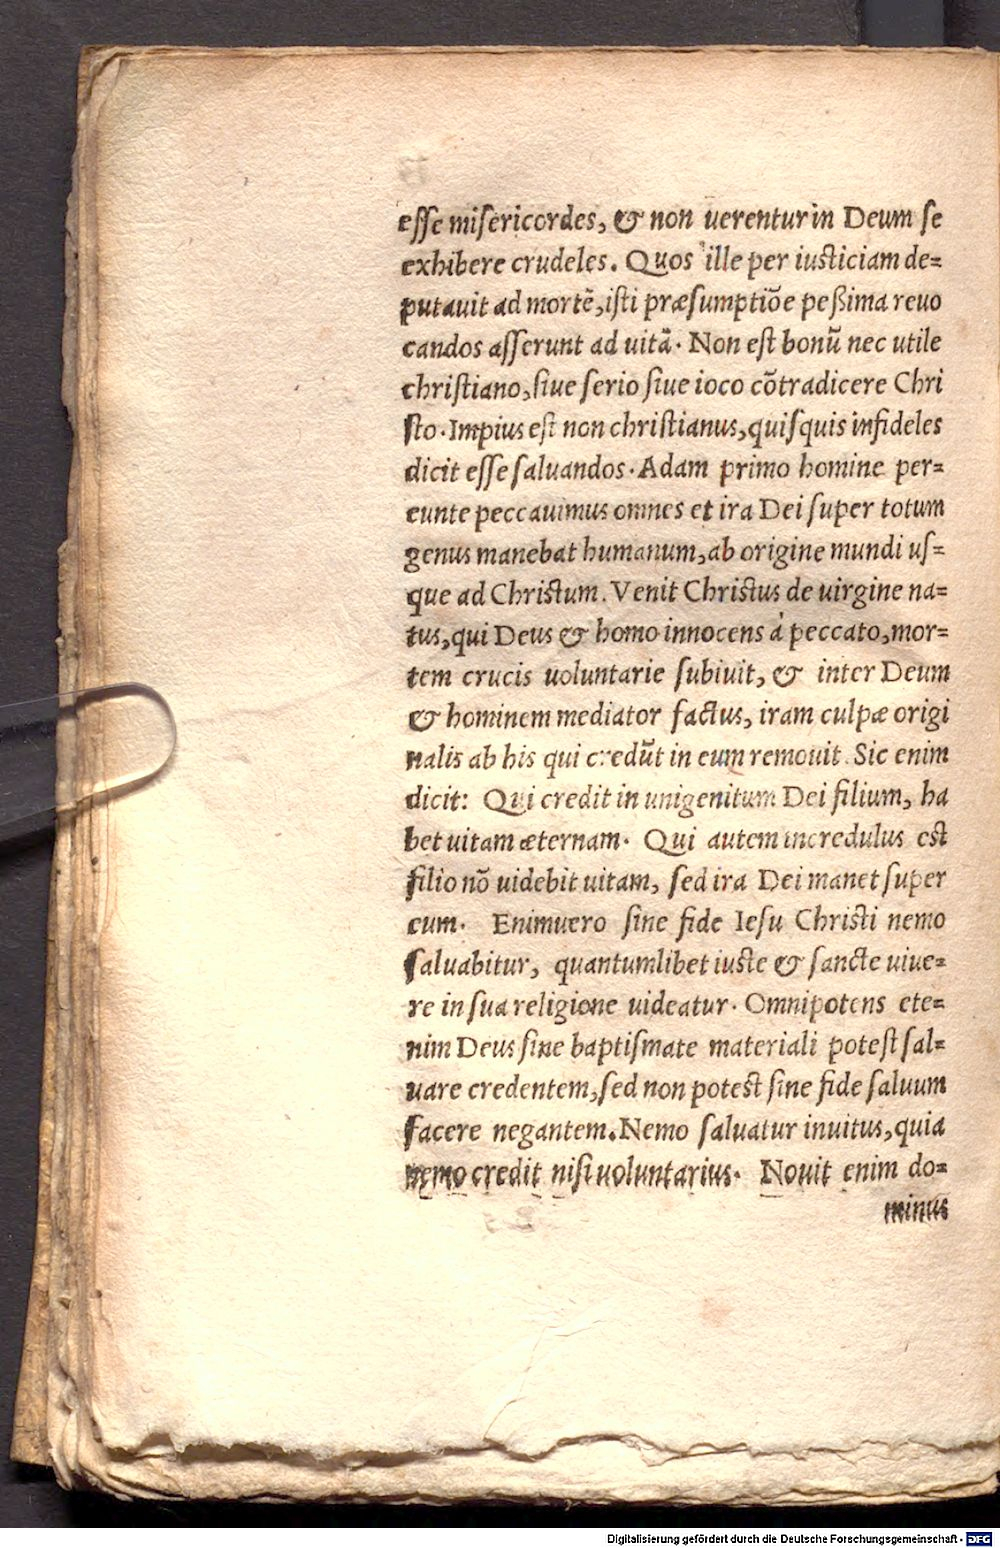 esse misericordes, & non uerentur in Deum se
exhibere crudeles. Quos ille per iusticiam de=
putauit ad mortē, isti præsumptiōe peßima reuo
candos asserunt ad uitā. Non est bonū nec utile
christiano, siue serio siue ioco cōtradicere Chri
sto. Impius est non christianus, quisquis infideles
dicit esse saluandos. Adam primo homine per=
eunte peccauimus omnes et ira Dei super totum
genus manebat humanum, ab origine mundi us=
que ad Christum. Venit Christus de uirgine na=
tus, qui Deus & homo innocens á peccato, mor=
tem crucis uoluntarie subiuit, & inter Deum
& hominem mediator factus, iram culpæ origi
nalis ab his qui credūt in eum remouit. Sic enim
dicit: Qui credit in unigenitum Dei filium, ha
bet uitam æternam. Qui autem incredulus est
filio nō uidebit uitam, sed ira Dei manet super
eum. Enimuero sine fide Iesu Christi nemo
saluabitur, quantumlibet iuste & sancte uiue=
re in sua religione uideatur. Omnipotens ete=
nim Deus sine baptismate materiali potest sal=
uare credentem, sed non potest sine fide saluum
facere negantem. Nemo saluatur inuitus, quia
nemo credit nisi uoluntarius. Nouit enim do=
minus
Digitalisierung gefördert durch die Deutsche Forschungsgemeinschaft - DFG